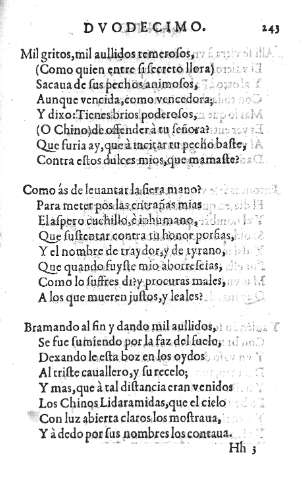 DVODECIMO. 243
Mil gritos, mil aullidos temerosos,
(Como quien entre si secreto llora)
Sacaua de sus pechos animosos,
Aunque vencida, como vencedora,
Y dixo: Tienes brios poderosos,
(O Chino) de ofender à tu señora?
Que furia ay, que à incitar tu pecho baste,
Contra estos dulces mios, que mamaste?
Como ás de leuantar la fiera mano?
Para meter por las entrañas mias
El aspero cuchillo, è inhumano,
Que sustentar contra tu honor porfias,
Y el nombre de traydor, y de tyrano,
Que quando fuyste mio aborrescias,
Como lo sufres di? y procuras males,
A los que mueren justos, y leales?
Bramando al fin y dando mil aullidos,
Se fue sumiendo por la faz del suelo,
Dexando le esta boz en los oydos
Al triste cauallero, y su recelo;
Y mas, que à tal distancia eran venidos
Los Chinos Lidaramidas, que el cielo
Con luz abierta claros los mostraua,
Y à dedo por sus nombres los contaua.
Hh 3